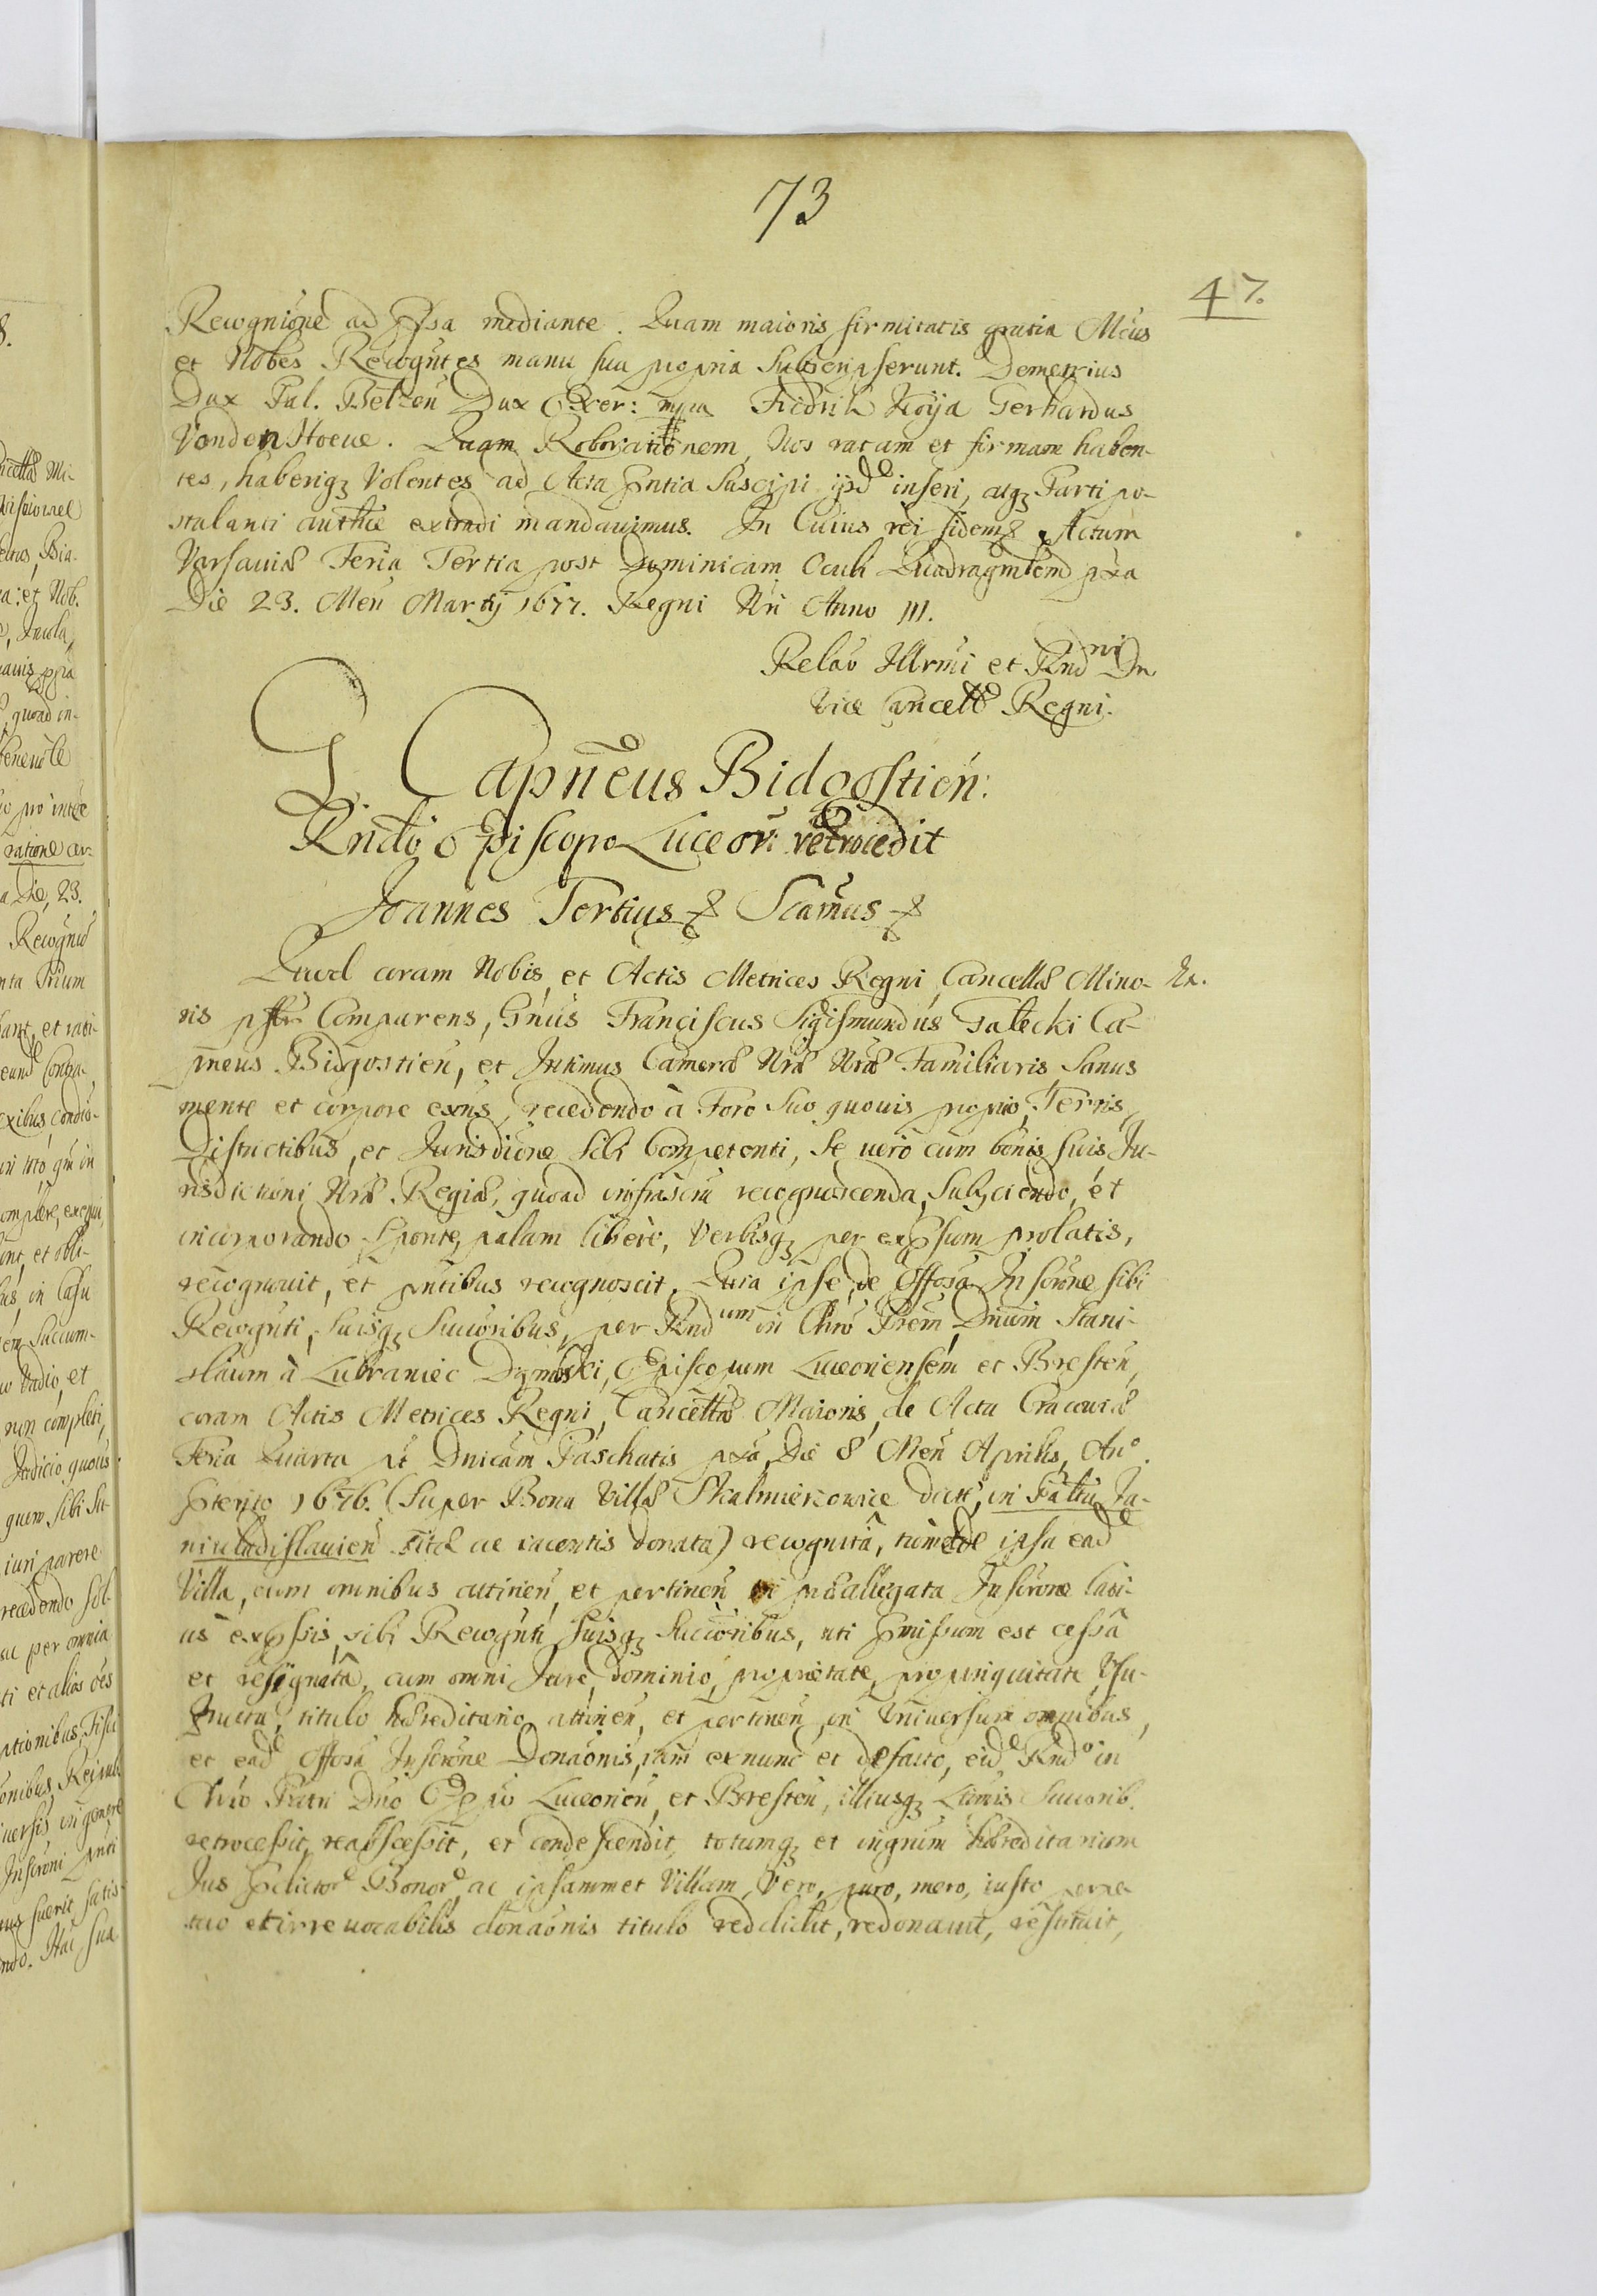 73
47.
Recognióne ad praemissa mediante. Quam maioris firmitatis gratia Mcus
et Nobes Recogntes manu sua propria Subscripserunt. Demetrius
Dux Pal. Belzen Dux Exer: mpa Fridrik Gerhardus
Vonden Hoeue. Quam Roborationem, Nos ratam et firmam haben-
tes, haberiq3 Volentes ad Acta pntia Suscipi ijsde inseri, atq3 Parti po-
stulanti authce extradi mandauimus. In Cuius rei fidem Actum
Varsauiæ Feria Tertia post Dominicam Oculi Quadragmlem pxa
Die 23. Men Martij 1677. Regni Nri Anno III.
Relao Illrmi et Rndmi Dn
Vice Cancellæ Regni.
Capneus Bidgostien:
Rndo Episcopo Luceor: retrocedit
Joannes Tertius Scamus
Quod coram Nobis, et Actis Metrices Regni, Cancellæ Mino- Rx.
ris psltr Comparens, Gnus Franciscus Sigismundus Gałecki Ca-
pneus Bidgostien, et Intimus Cameræ Nræ Nræ Familiaris, Sanus
mente et corpore exns, recedendo à Foro Suo quouis proprio, Terris,
Districtibus, et Jurisdióne Sibi Competenti, Se vero cum bonis suis Ju-
risdictioni Nræ Regiæ, quoad infrascra recognoscenda, Subijciendo, et
incorporando Sponte, palam libere, Verbisq3 per expssum prolatis,
recognouit, et pntibus recognoscit. Quia ipse de Offosa Inscrone sibi
Recognti, Suisq3 Succoribus, per Rndum in Chro Prem, Dnum Stani-
slaum à Lubraniec Dąmbski, Episcopum Luceoriensem et Bresten,
coram Actis Metrices Regni, Cancellæ Maioris, de Acta Cracouiæ
Feria Quarta pt Dnicam Paschatis pxa, Die 8 Men Aprilis, Ano.
pterito 1676. (Super Bona Villæ Skalmierzowice dictæ, in Pałtu Ju-
niuladislauien Sitæ ac iacentis donata) recognita, tum de ipsa eade
Villa, cum omnibus attinen, et pertinen in præallegata Inscrone lati-
us expssis, sibi Recognti Suisq3 Succoribus, uti pmissum est cessa
et resignata, cum omni Jure, dominio, proprietate, propinquitate, Vsu-
fructu, titulo hæreditario, attinen, et pertinen, in Vniuersum omnibus,
et eade Offosa Inscrone Donaonis, iam exnunc et defacto, eide Rndo in
Chro Patri Dno Eppo Luceorien, et Bresten, illiusq3 Ltimis Succorib.
retrocessit, reabscessit, et condescendit, totumq3 et ingrum hæreditarium
Jus pdictor Bonor, ac ipsammet Villam, Vero, puro, mero, iusto perpe-
tuo et irreuocabilis donaonis titulo reddidit, redonauit, restituit,